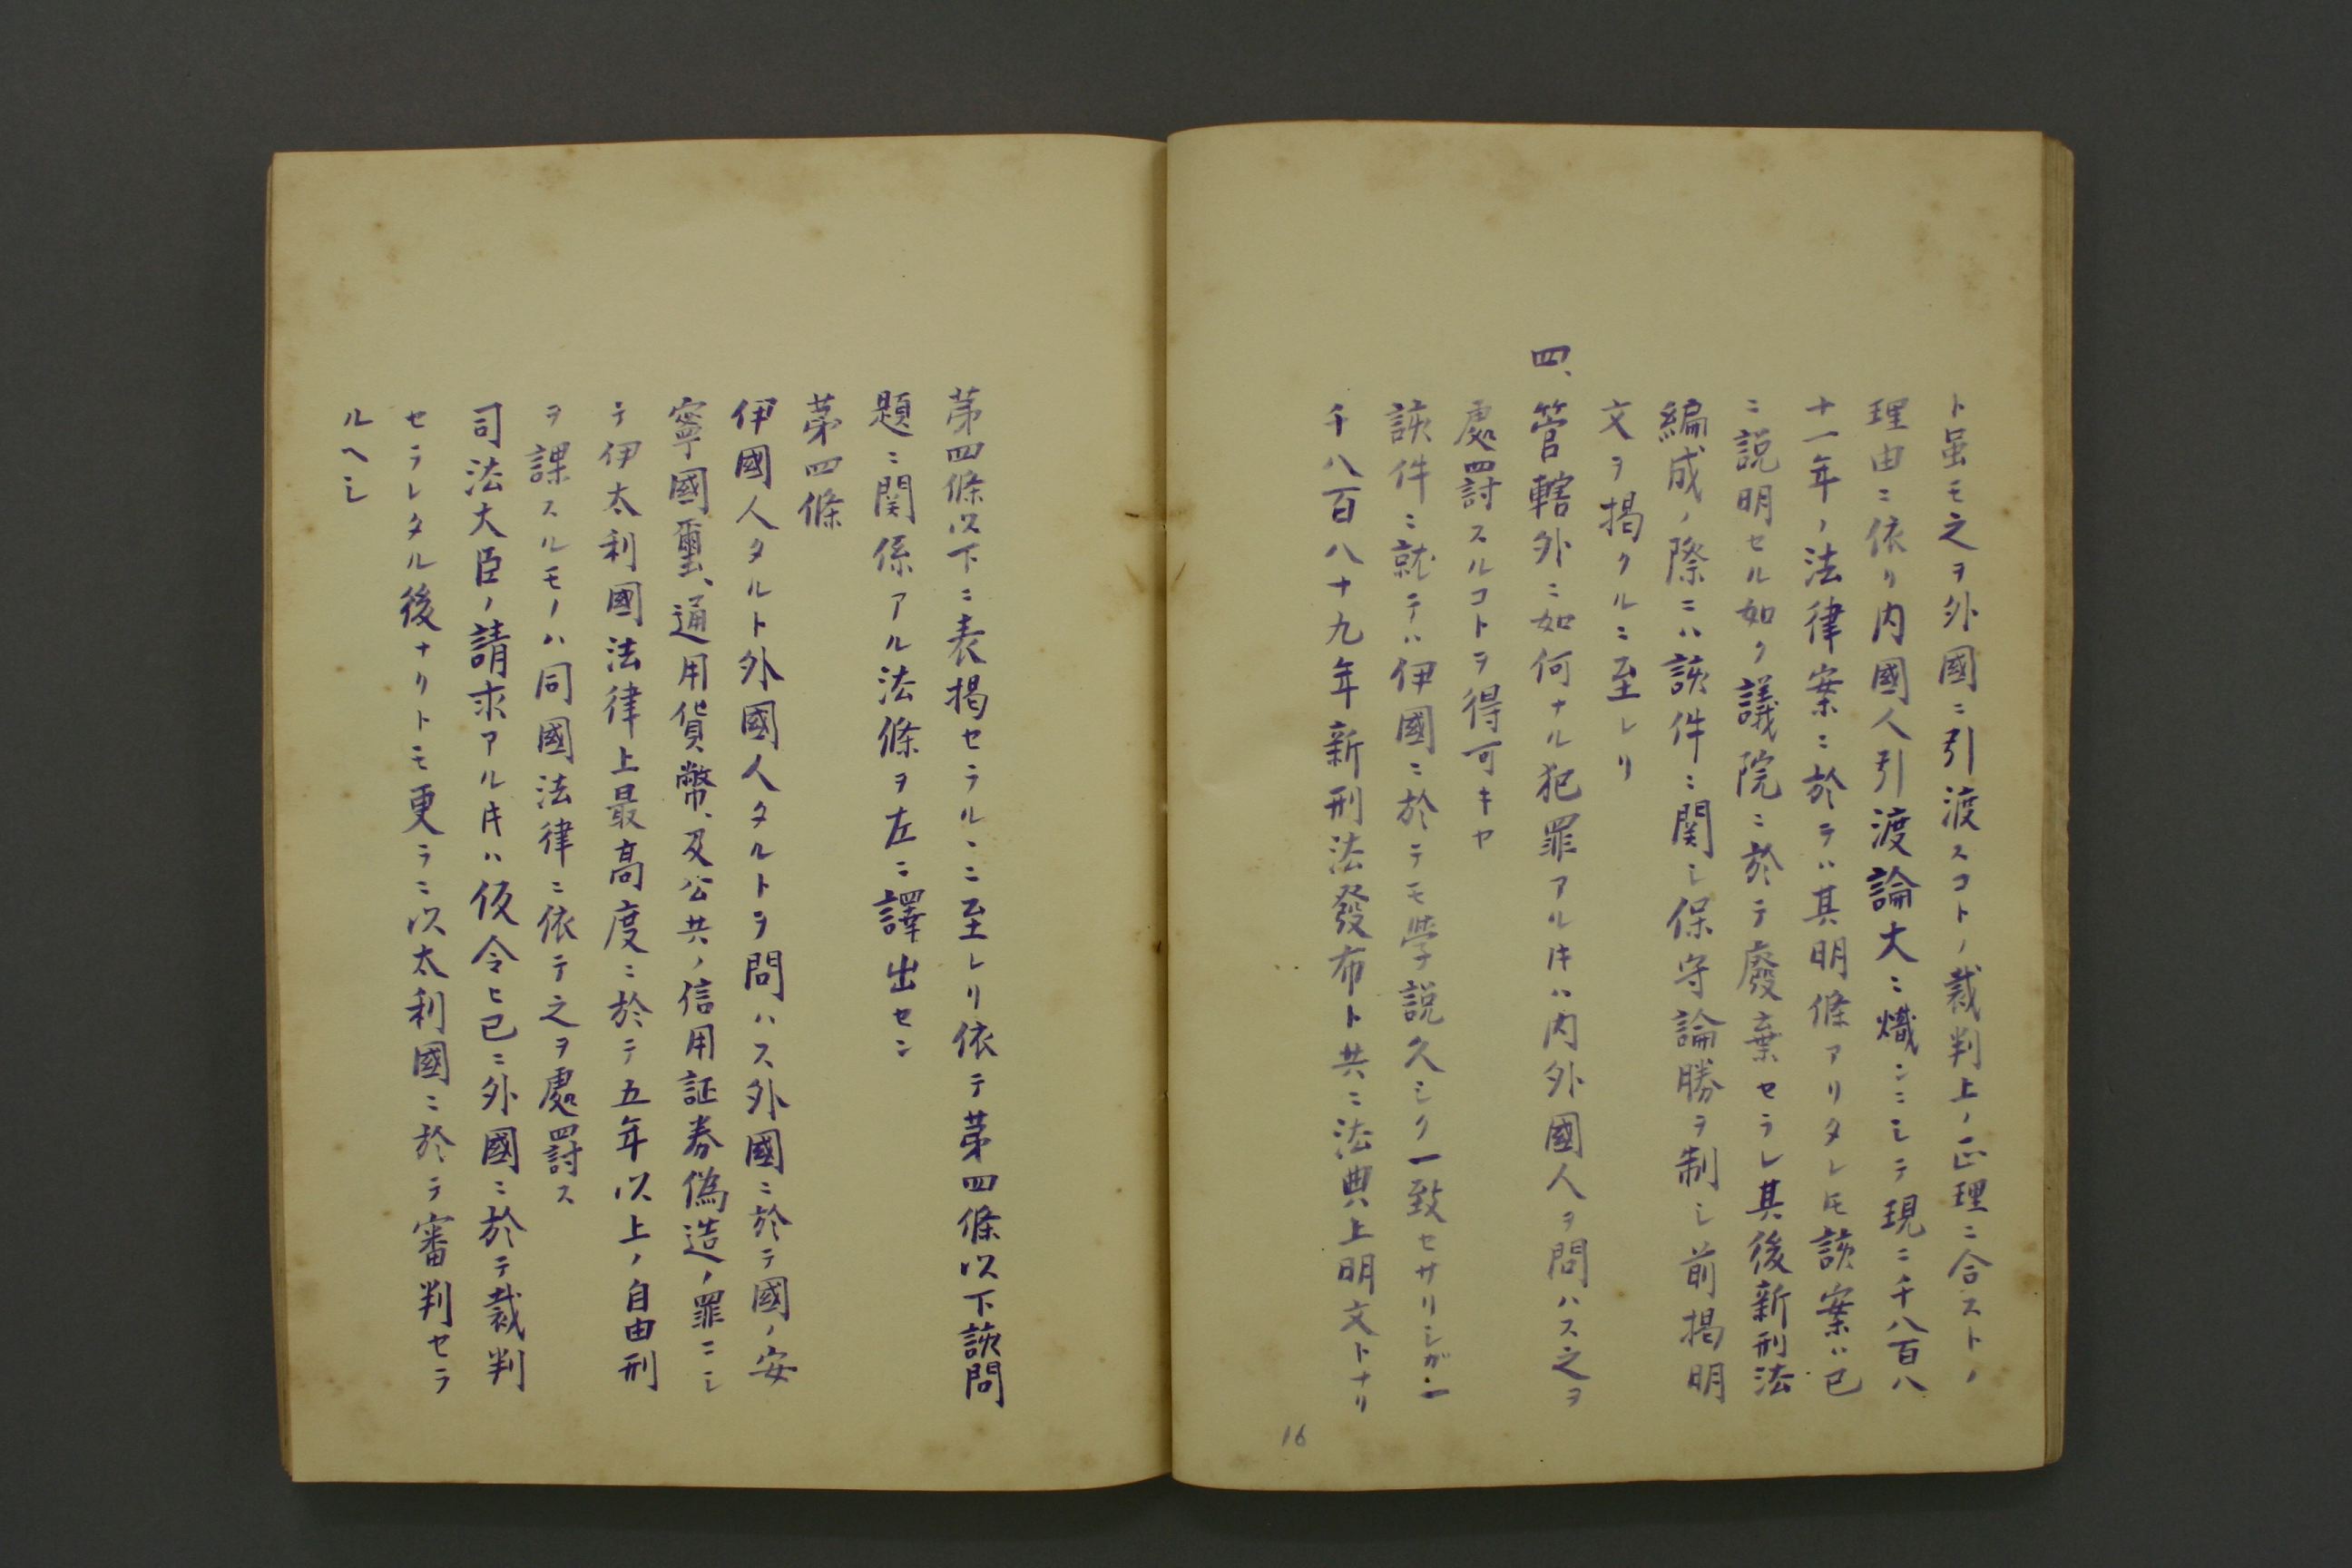 ト虽モ之ヲ外國ニ引渡スコトノ裁判上ノ正理ニ合ストノ
理由ニ依リ内國人引渡論大ニ熾ンニシテ現ニ千八百八
十一年ノ法律案ニ於テハ其明條アリタレ𪜈該案ハ已
ニ説明セル如ク議院ニ於テ廢棄セラレ其後新刑法
編成ノ際ニハ該件ニ関シ保守論勝ヲ制シ前掲明
文ヲ掲クルニ至レリ
四、管轄外ニ如何ナル犯罪アル𪜈ハ内外國人ヲ問ハス之ヲ
處罰スルコトヲ得可キヤ
該件ニ就テハ伊國ニ於テモ學説久シク一致セサリシガ一
千八百八十九年新刑法發布ト共ニ法典上明文トナリ
16
第四條以下ニ表掲セラルヽニ至レリ依テ第四條以下該問
題ニ関係アル法條ヲ左ニ譯出セン
第四條
伊國人タルト外國人タルトヲ問ハス外國ニ於テ國ノ安
寧國璽、通用貨幣、及公共ノ信用証券偽造ノ罪ニシ
テ伊太利國法律上最高度ニ於テ五年以上ノ自由刑
ヲ課スルモノハ同國法律ニ依テ之ヲ處罰ス
司法大臣ノ請求アル𪜈ハ仮令ヒ已ニ外國ニ於テ裁判
セラレタル後ナリトモ更ラニ以太利國ニ於テ審判セラ
ルヘシ